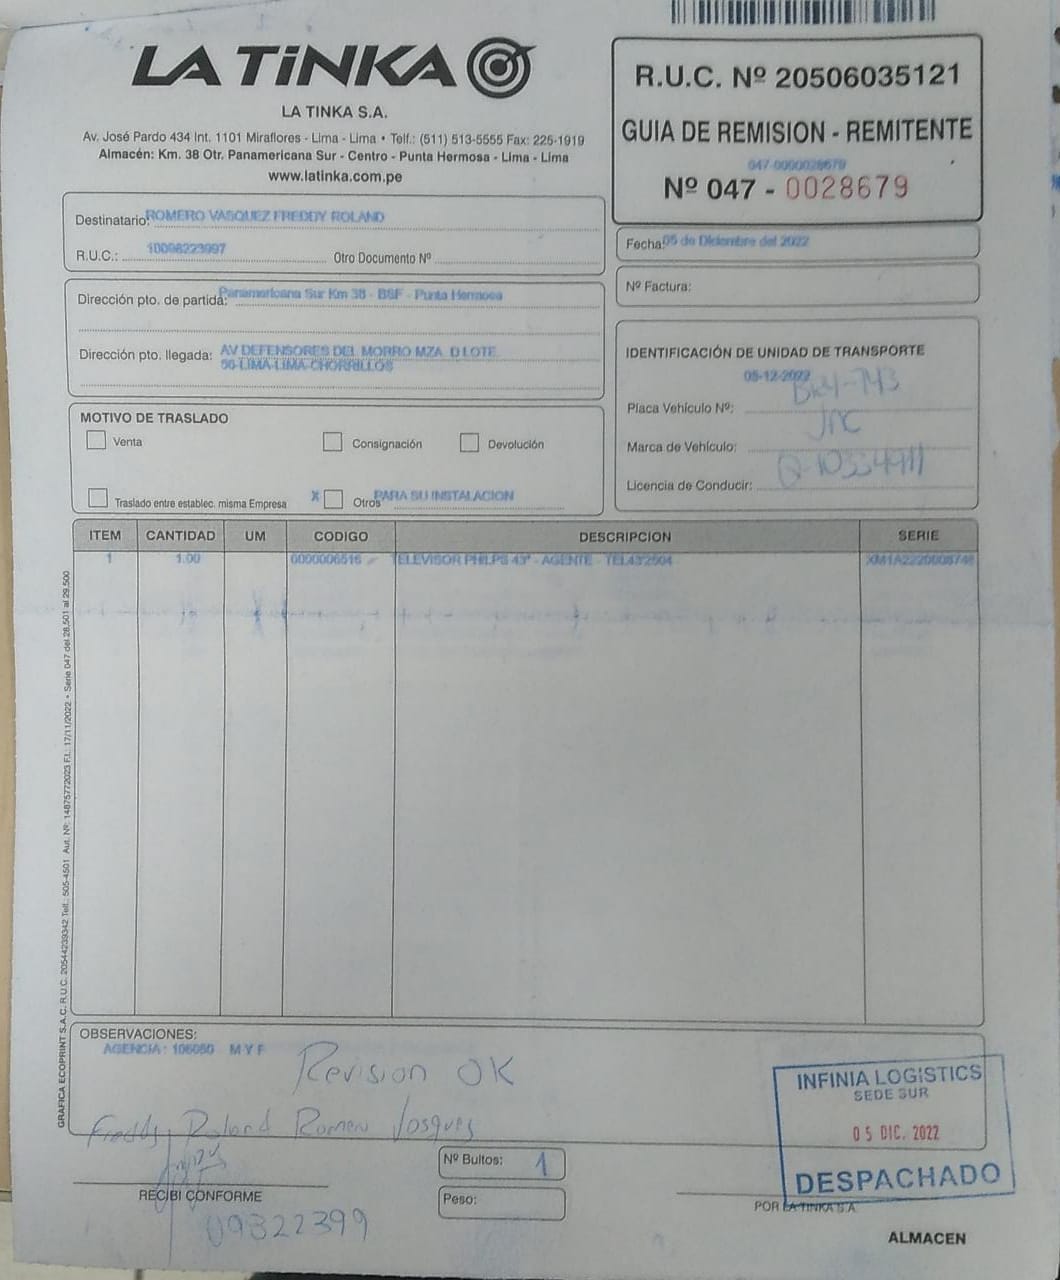 LA TiNKA
LA TINKA S.A.
Av. José Pardo 434 Int. 1101 Miraflores - Lima - Lima • Telf.: (511) 513-5555 Fax: 225-1919
Almacén: Km. 38 Otr. Panamericana Sur - Centro - Punta Hermosa - Lima - Lima
www.latinka.com.pe
R.U.C. Nº 20506035121
GUIA DE REMISION - REMITENTE
047-0000028679
Nº 047 - 0028679
Destinatario: ROMERO VASQUEZ FREDDY ROLAND
R.U.C.: 10098223997 Otro Documento Nº
Fecha: 05 de Diciembre del 2022
Nº Factura:
Dirección pto. de partida: Panamericana Sur Km 38 - BSF - Punta Hermosa
Dirección pto. llegada: AV DEFENSORES DEL MORRO MZA. D LOTE.
56-LIMA-LIMA-CHORRILLOS
IDENTIFICACIÓN DE UNIDAD DE TRANSPORTE
05-12-2022
Placa Vehículo Nº:
Marca de Vehículo: JMC
Licencia de Conducir:
MOTIVO DE TRASLADO
Venta Consignación Devolución
Traslado entre establec. misma Empresa X Otros PARA SU INSTALACION
ITEM CANTIDAD UM CODIGO DESCRIPCION SERIE
1 1.00 0000006516 TELEVISOR PHILPS 43" - AGENTE - TEL432504
GRAFICA ECOPRINT S.A.C. R.U.C. 20544239342 Telf.: 505-4501 Aut. Nº: 14875772023 F.I.: 17/11/2022 • Serie 047 del 28,501 al 29,500
OBSERVACIONES:
AGENCIA: 106050 M Y F
Revision OK
Freddy Roland Romero Vasquez
INFINIA LOGISTICS
SEDE SUR
05 DIC. 2022
DESPACHADO
Nº Bultos: 1
Peso:
RECIBI CONFORME
09822399
POR LA TINKA S.A.
ALMACEN